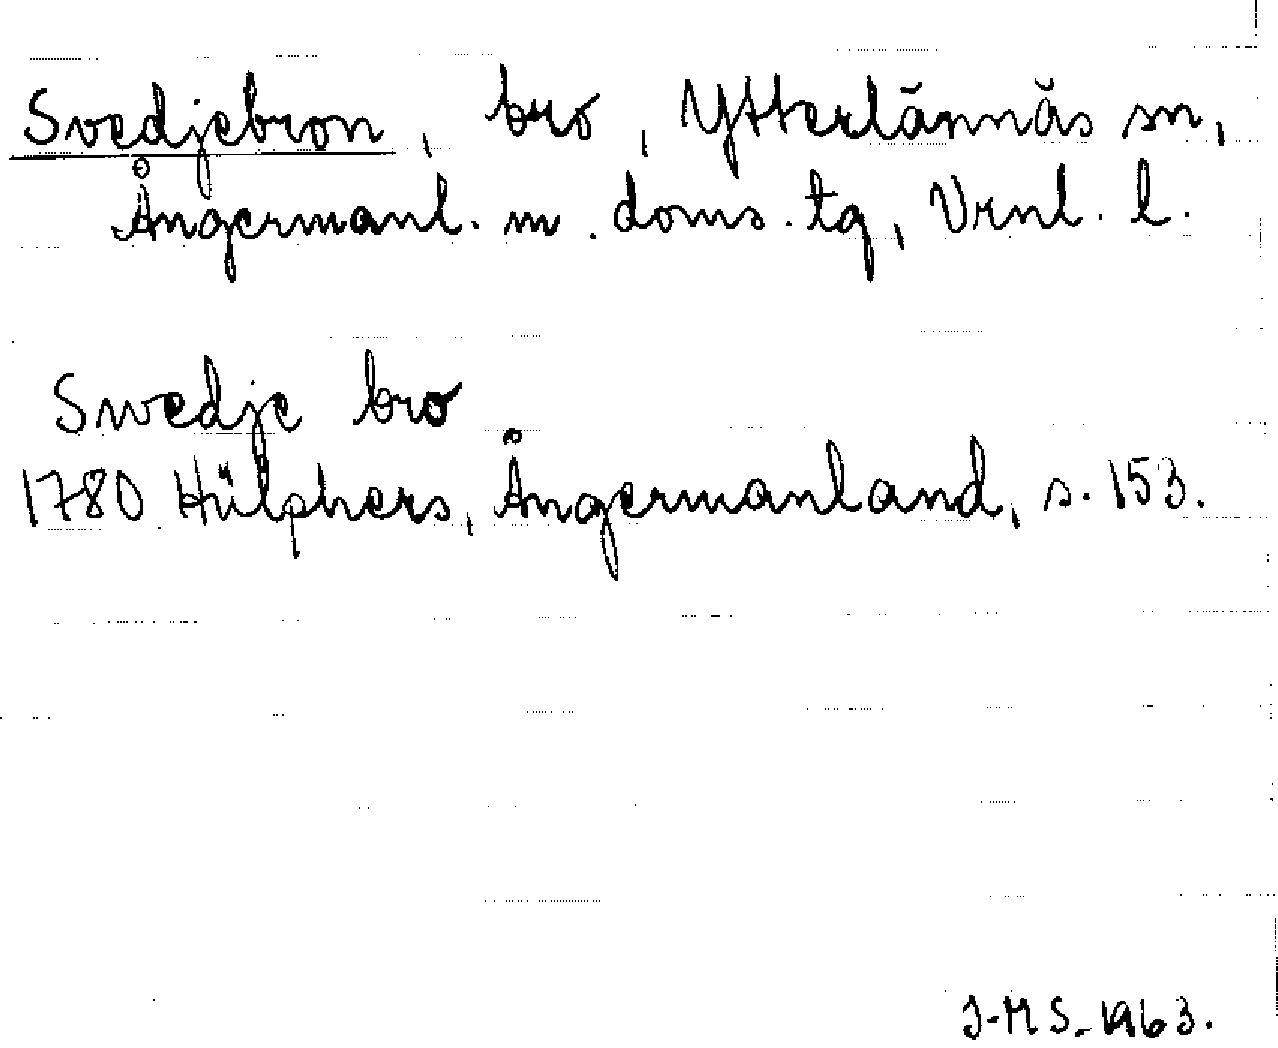 Svedjebron, bro, Ytterlännäs sn,
Ångermanl. m. doms. tg, Vrnl. l.
Swedje bro
1780 Hülphers, Ångermanland, s. 153.
J-MS-1963.